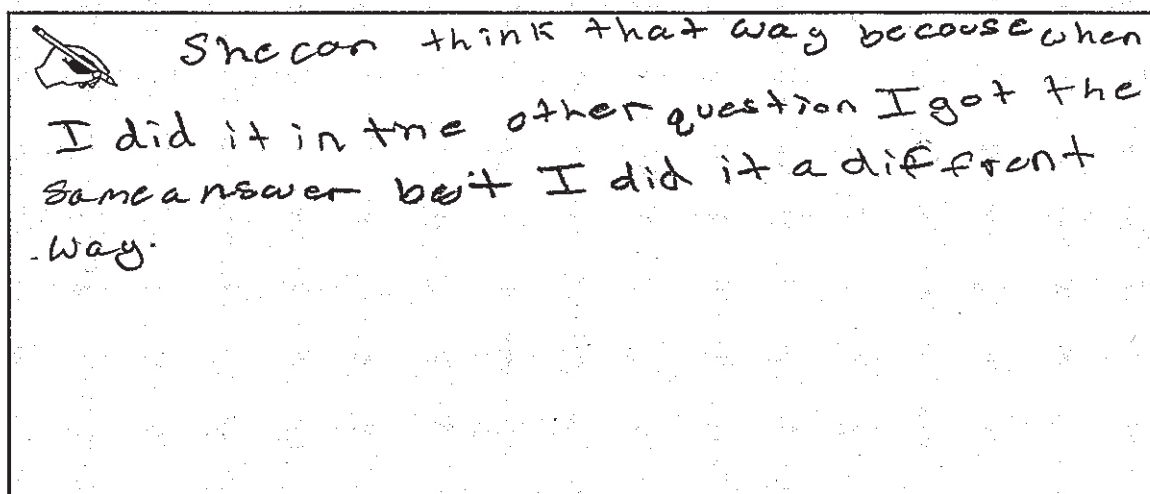 She can think that way becouse when
I did it in the other question I got the
same answer but I did it a diffrent
way.